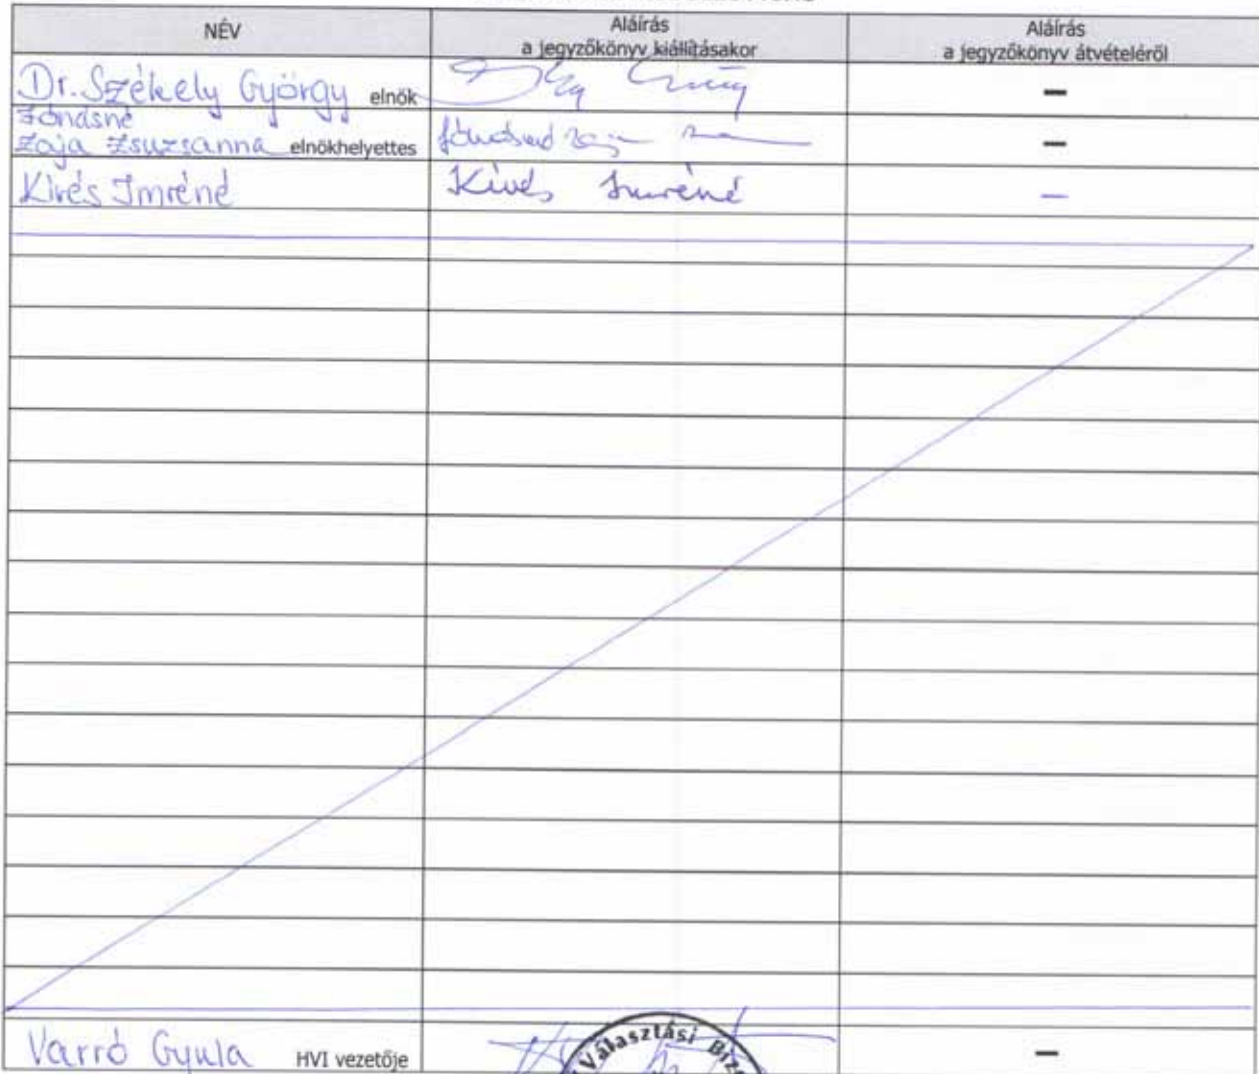 NÉV
Aláírás
a jegyzőkönyv kiállításakor
Aláírás
a jegyzőkönyv átvételéről
Dr. Székely György elnök
—
Fónásné
Zaja Zsuzsanna elnökhelyettes
—
Kivés Imréné
Kivés Imréné
—
Varró Gyula HVI vezetője
Választási
—